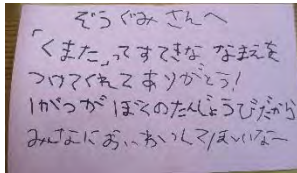 ぞうぐみさんへ
「くまた」ってすてきな なまえを
つけてくれてありがとう!
1がつが ぼくのたんじょうびだから
みんなにおいわいしてほしいなー